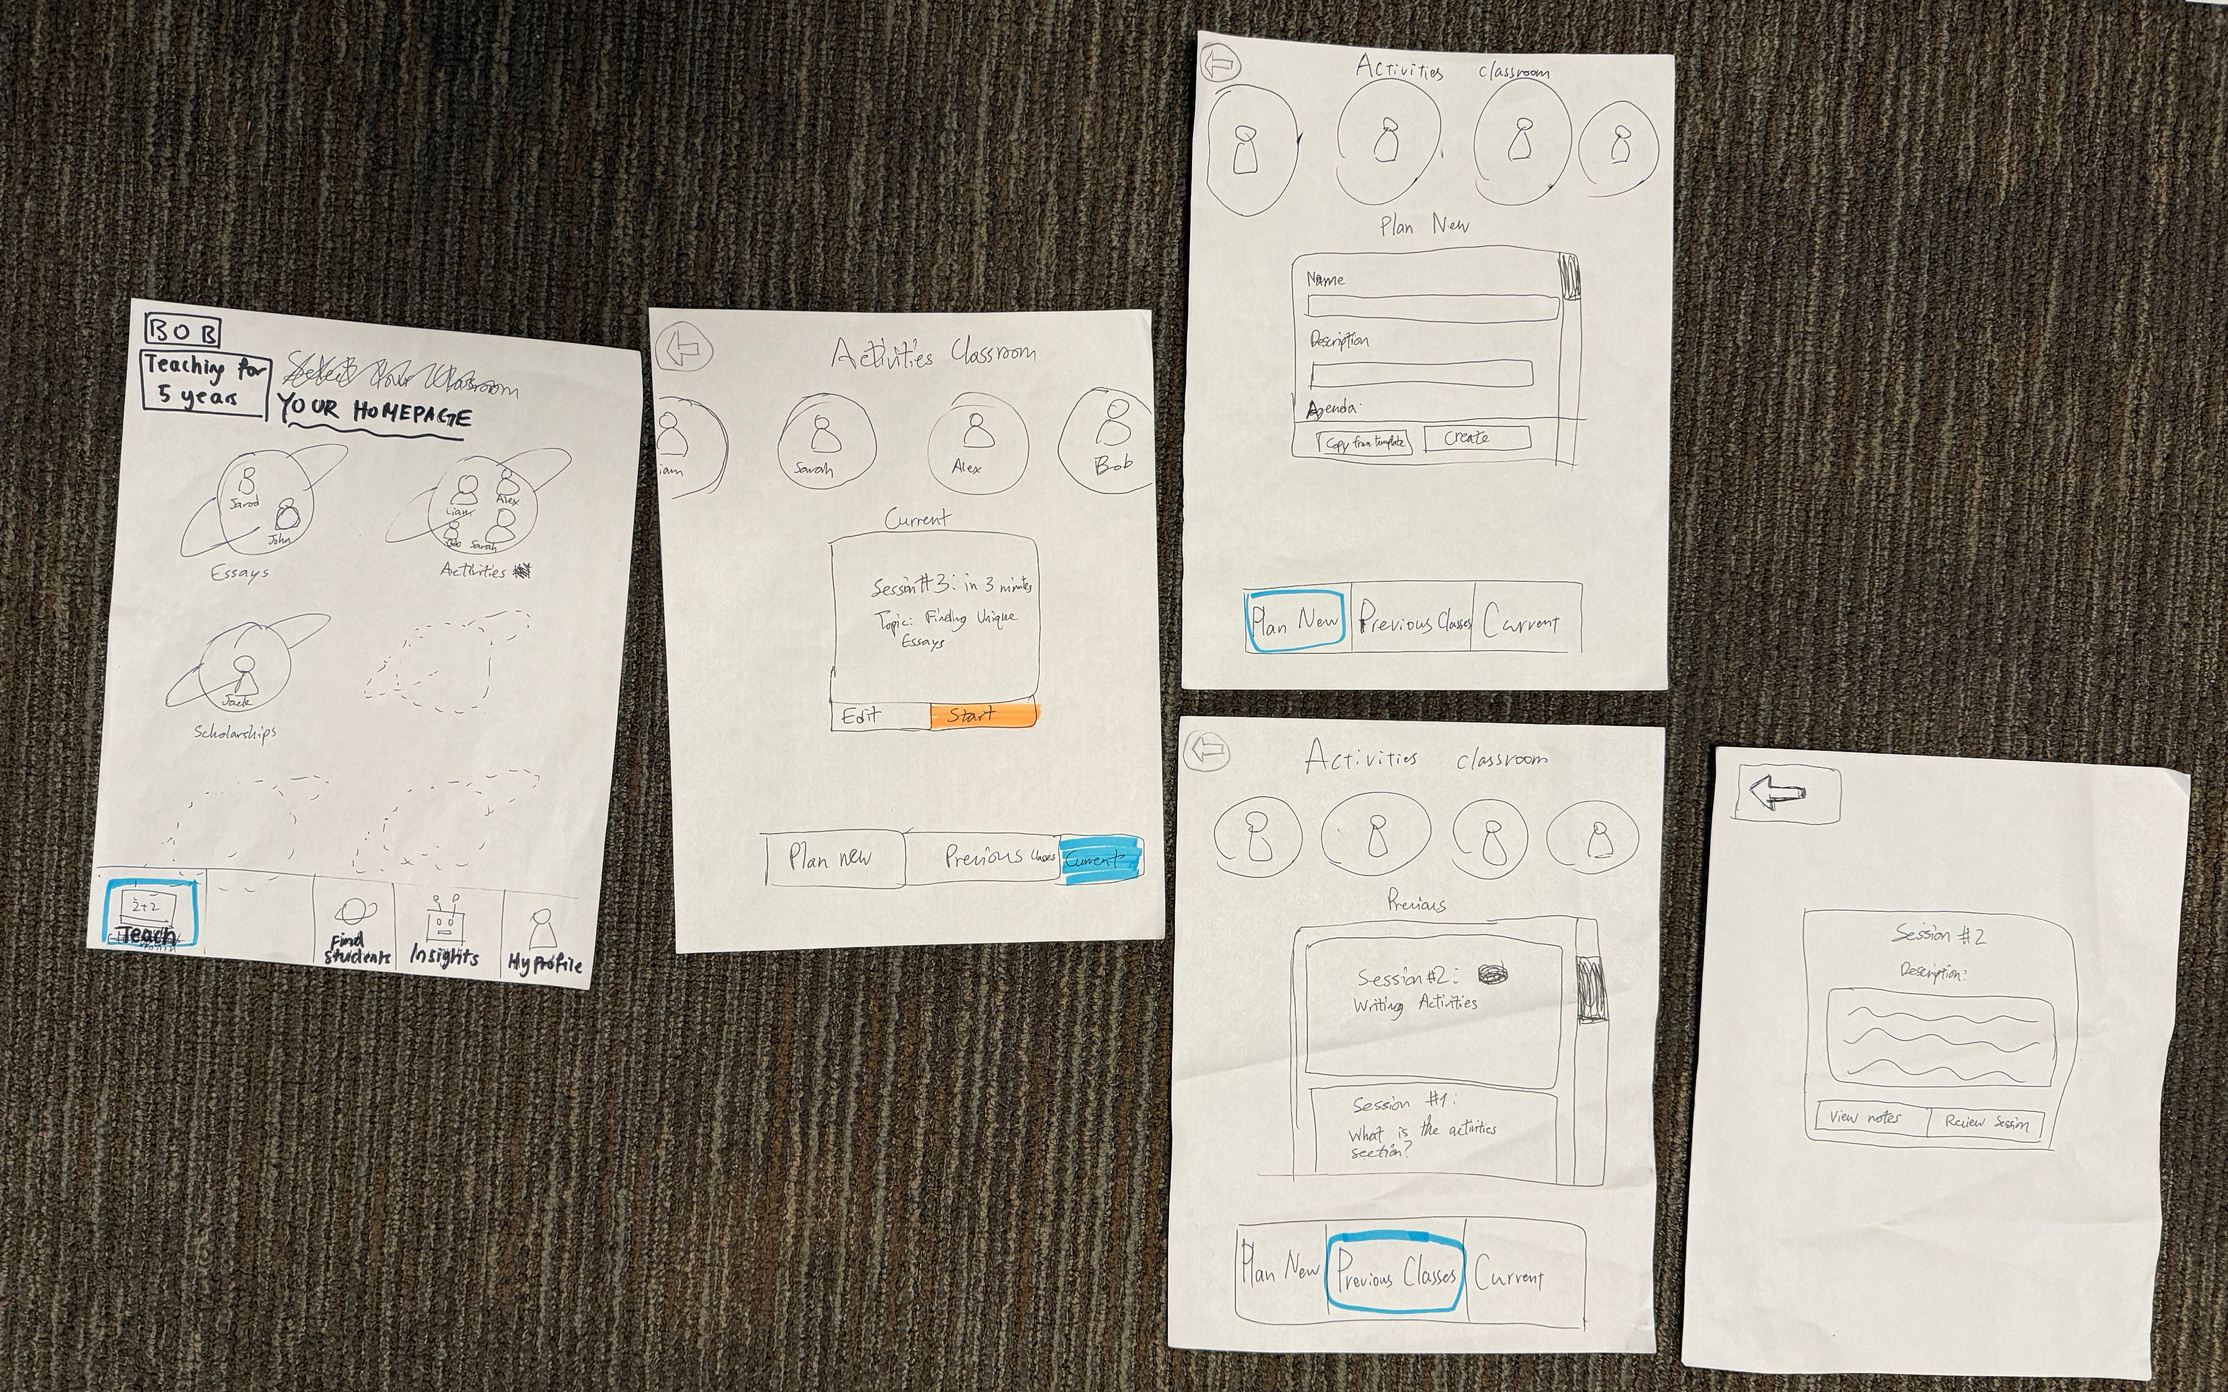 BOB
Teaching for
5 years
Select Your Classroom
YOUR HOMEPAGE
Jarod
John
Essays
Liam
Alex
Bob
Sarah
Activities
Jack
Scholarships
2+2
Teach
Find
Students
Insights
My Profile
Activities Classroom
iam
Sarah
Alex
Bob
Current
Session #3: in 3 minutes
Topic: Finding Unique
Essays
Edit
Start
Plan new
Previous Classes
Current
Activities classroom
Plan New
Name
Description
Agenda:
Copy from template
Create
Plan New
Previous Classes
Current
Activities classroom
Previous
Session #2:
Writing Activities
Session #1:
What is the activities
section?
Plan New
Previous Classes
Current
Session #2
Description:
View notes
Review Session